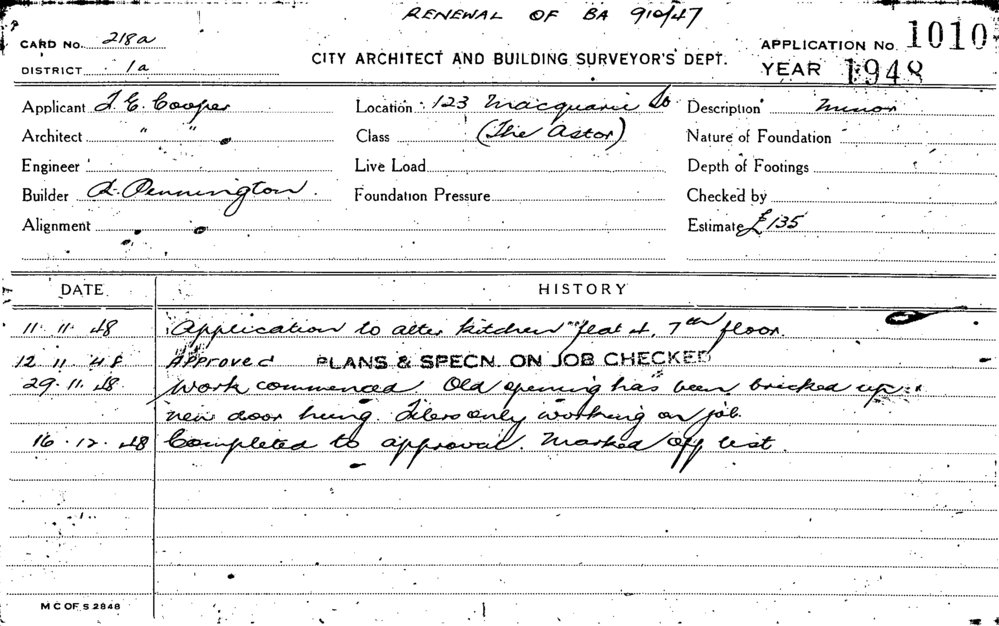 RENEWAL OF BA 910/47
CARD No. 218a
DISTRICT 1a
CITY ARCHITECT AND BUILDING SURVEYOR'S DEPT.
APPLICATION No. 1010
YEAR 1948
Applicant J. E. Cooper Location 123 Macquarie St Description Minor
Architect " " Class (The Astor) Nature of Foundation
Engineer Live Load Depth of Footings
Builder A. Pennington Foundation Pressure Checked by
Alignment Estimate £135
DATE HISTORY
11.11.48 Application to alter kitchen flat 4, 7th floor.
12.11.48 Approved PLANS & SPECN. ON JOB CHECKED
29.11.48 Work commenced. Old opening has been bricked up &
new door hung. Tilers only working on job.
16.12.48 Completed to approval. Marked off list.
M C OF S 2848